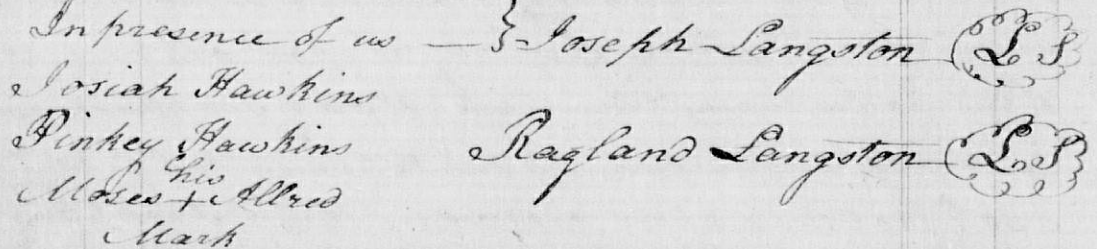 In presence of us — } Joseph Langston (L S)
Josiah Hawkins
Pinkey Hawkins Ragland Langston (L S)
his
Moses + Allred
Mark